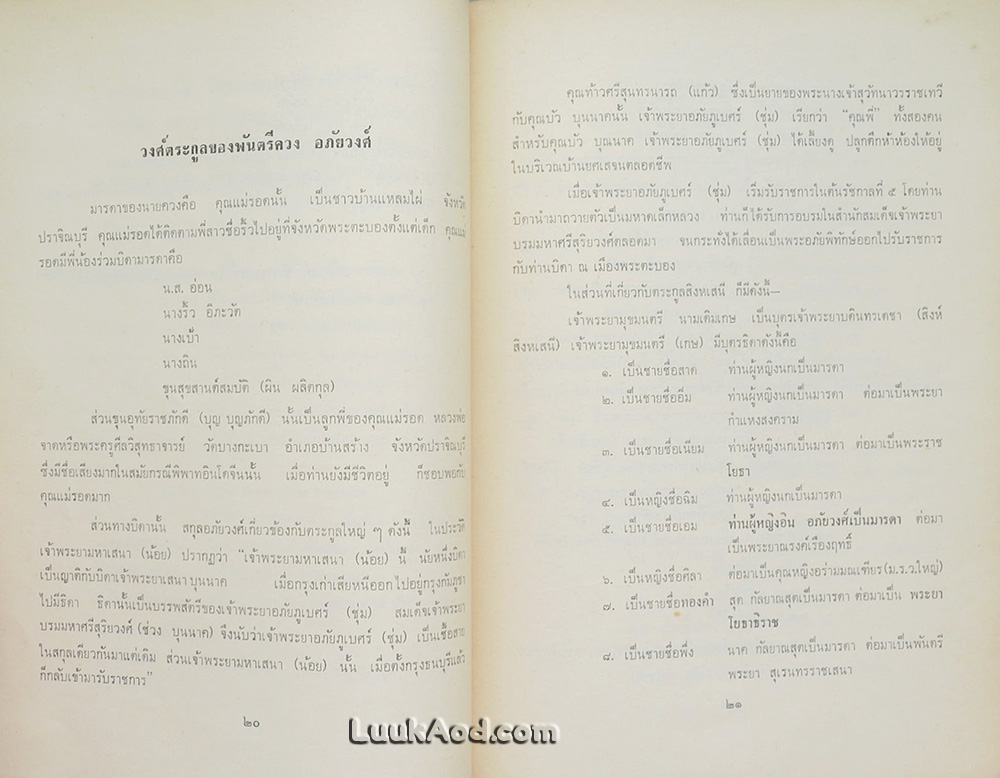 วงศ์ตระกูลของพันตรีควง อภัยวงศ์
มารดาของนายควงคือ คุณแม่รอดนั้น เป็นชาวบ้านแหลมไผ่ จังหวัด
ปราจิณบุรี คุณแม่รอดได้ติดตามพี่สาวชื่อริ้วไปอยู่ที่จังหวัดพระตะบองตั้งแต่เด็ก คุณแม่
รอดมีพี่น้องร่วมบิดามารดาคือ
น.ส. อ่อน
นางริ้ว อิภะวัต
นางเบ้า
นางถิน
ขุนสุขสานต์สมบัติ (ผิน ผลิตกุล)
ส่วนขุนอุทัยราชภักดี (บุญ บุญภักดี) นั้นเป็นลูกพี่ของคุณแม่รอด หลวงพ่อ
จาดหรือพระครูศีลวิสุทธาจารย์ วัดบางกะเบา อำเภอบ้านสร้าง จังหวัดปราจิณบุรี
ซึ่งมีชื่อเสียงมากในสมัยกรณีพิพาทอินโดจีนนั้น เมื่อท่านยังมีชีวิตอยู่ ก็ชอบพอกับ
คุณแม่รอดมาก
ส่วนทางบิดานั้น สกุลอภัยวงศ์เกี่ยวข้องกับตระกูลใหญ่ ๆ ดังนี้ ในประวัติ
เจ้าพระยามหาเสนา (น้อย) ปรากฏว่า “เจ้าพระยามหาเสนา (น้อย) นี้ นัยหนึ่งบิดา
เป็นญาติกับบิดาเจ้าพระยาเสนา บุนนาค เมื่อกรุงเก่าเสียหนีออกไปอยู่กรุงกัมภูชา
ไปมีธิดา ธิดานั้นเป็นบรรพสัตรีของเจ้าพระยาอภัยภูเบศร์ (ชุ่ม) สมเด็จเจ้าพระยา
บรมมหาศรีสุริยวงศ์ (ช่วง บุนนาค) จึงนับว่าเจ้าพระยาอภัยภูเบศร์ (ชุ่ม) เป็นเชื้อสาย
ในสกุลเดียวกันมาแต่เดิม ส่วนเจ้าพระยามหาเสนา (น้อย) นั้น เมื่อตั้งกรุงธนบุรีแล้ว
ก็กลับเข้ามารับราชการ”
๒๐
คุณท้าวศรีสุนทรนารถ (แก้ว) ซึ่งเป็นยายของพระนางเจ้าสุวัทนาวรราชเทวี
กับคุณบัว บุนนาคนั้น เจ้าพระยาอภัยภูเบศร์ (ชุ่ม) เรียกว่า “คุณพี่” ทั้งสองคน
สำหรับคุณบัว บุณนาค เจ้าพระยาอภัยภูเบศร์ (ชุ่ม) ได้เลี้ยงดู ปลูกตึกห้าห้องให้อยู่
ในบริเวณบ้านยศเสจนตลอดชีพ
เมื่อเจ้าพระยาอภัยภูเบศร์ (ชุ่ม) เริ่มรับราชการในต้นรัชกาลที่ ๕ โดยท่าน
บิดานำมาถวายตัวเป็นมหาดเล็กหลวง ท่านก็ได้รับการอบรมในสำนักสมเด็จเจ้าพระยา
บรมมหาศรีสุริยวงศ์ตลอดมา จนกระทั่งได้เลื่อนเป็นพระอภัยพิทักษ์ออกไปรับราชการ
กับท่านบิดา ณ เมืองพระตะบอง
ในส่วนที่เกี่ยวกับตระกูลสิงหเสนี ก็มีดังนี้—
เจ้าพระยามุขมนตรี นามเดิมเกษ เป็นบุตรเจ้าพระยาบดินทรเดชา (สิงห์
สิงหเสนี) เจ้าพระยามุขมนตรี (เกษ) มีบุตรธิดาดังนี้คือ
๑. เป็นชายชื่อสาด ท่านผู้หญิงนกเป็นมารดา
๒. เป็นชายชื่ออึม ท่านผู้หญิงนกเป็นมารดา ต่อมาเป็นพระยา
กำแหงสงคราม
๓. เป็นชายชื่อเนียม ท่านผู้หญิงนกเป็นมารดา ต่อมาเป็นพระราช
โยธา
๔. เป็นหญิงชื่อฉิม ท่านผู้หญิงนกเป็นมารดา
๕. เป็นชายชื่อเอม ท่านผู้หญิงอิน อภัยวงศ์เป็นมารดา ต่อมา
เป็นพระยาณรงค์เรืองฤทธิ์
๖. เป็นหญิงชื่อศิลา ต่อมาเป็นคุณหญิงอร่ามมณเฑียร (ม.ร.ว.ใหญ่)
๗. เป็นชายชื่อทองคำ สุด กัลยาณสุตเป็นมารดา ต่อมาเป็น พระยา
โยธาธิราช
๘. เป็นชายชื่อพึ่ง นาค กัลยาณสุตเป็นมารดา ต่อมาเป็นพันตรี
พระยา สุเรนทรราชเสนา
๒๑
LuukAod.com